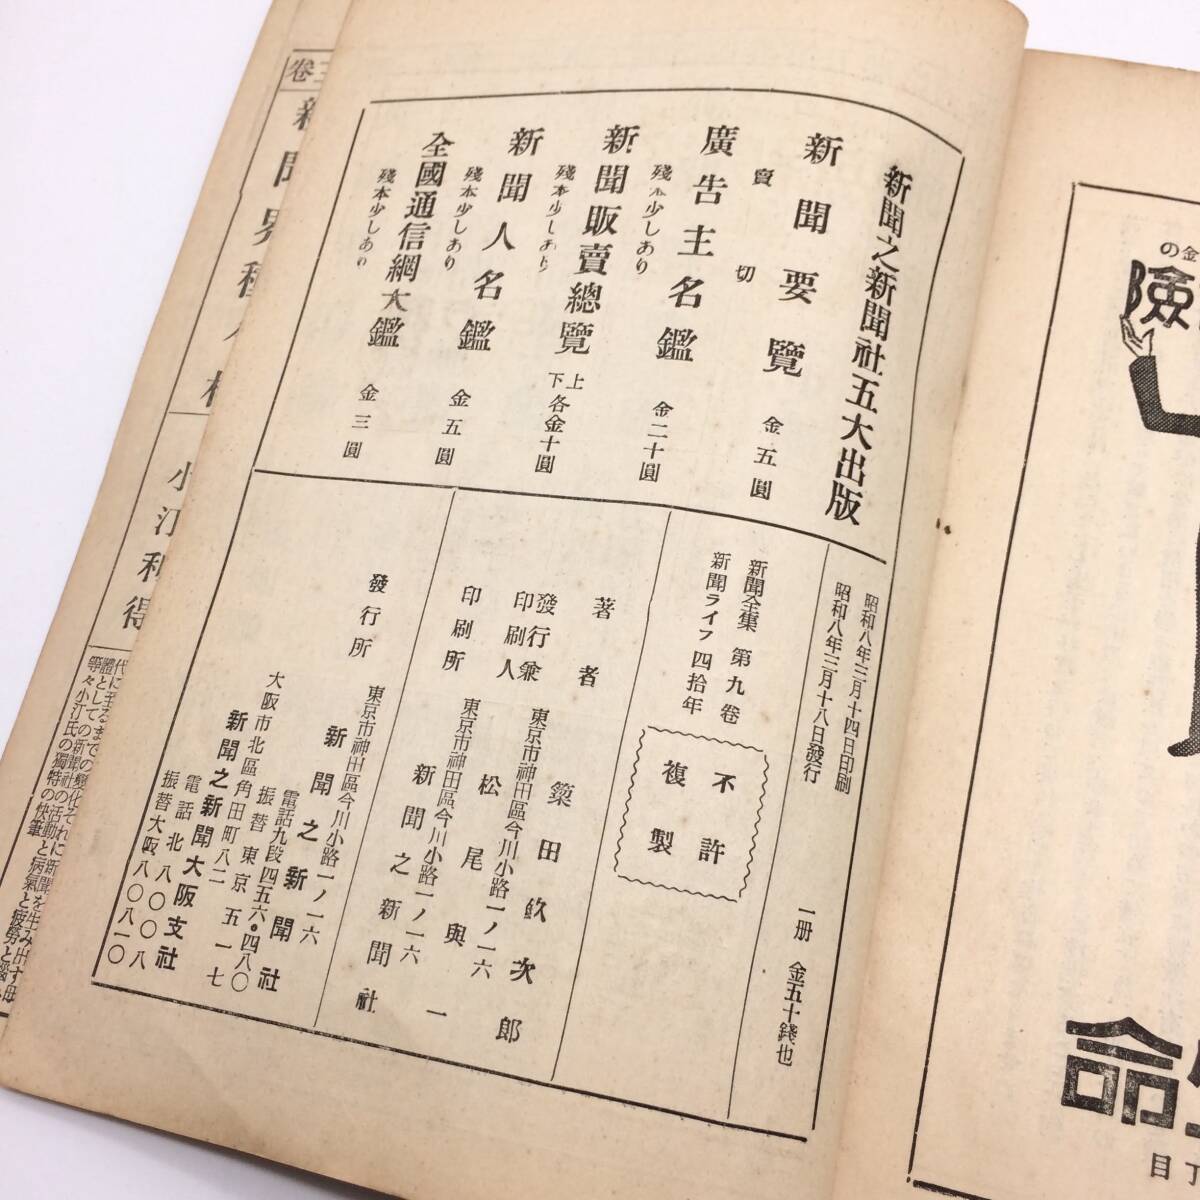 新聞之新聞社五大出版
新聞要覽
賣切
金五圓
廣告主名鑑
殘本少しあり
金二十圓
新聞販賣總覽
殘本少しあり
上下各金十圓
新聞人名鑑
殘本少しあり
金五圓
全國通信網大鑑
殘本少しあり
金三圓
昭和八年三月十四日印刷
昭和八年三月十八日發行
一册 金五十錢也
新聞全集 第九卷
新聞ライフ四拾年
不許
複製
著者
築田𣤶次郎
東京市神田區今川小路一ノ一六
發行兼
印刷人
松尾與一
東京市神田區今川小路一ノ一六
印刷所
新聞之新聞社
東京市神田區今川小路一ノ一六
發行所
新聞之新聞社
電話九段四五六・四八〇
振替東京五一一七
大阪市北區角田町八二
新聞之新聞大阪支社
電話北八〇〇八
振替大阪八〇八一〇
卷三
小汀利得
代に至るまでの變化それに新聞を生み出す母
體としての新聞社の活動と病氣と疲勞と
等々小汀氏の獨特の快筆
金の
險
命
丁目